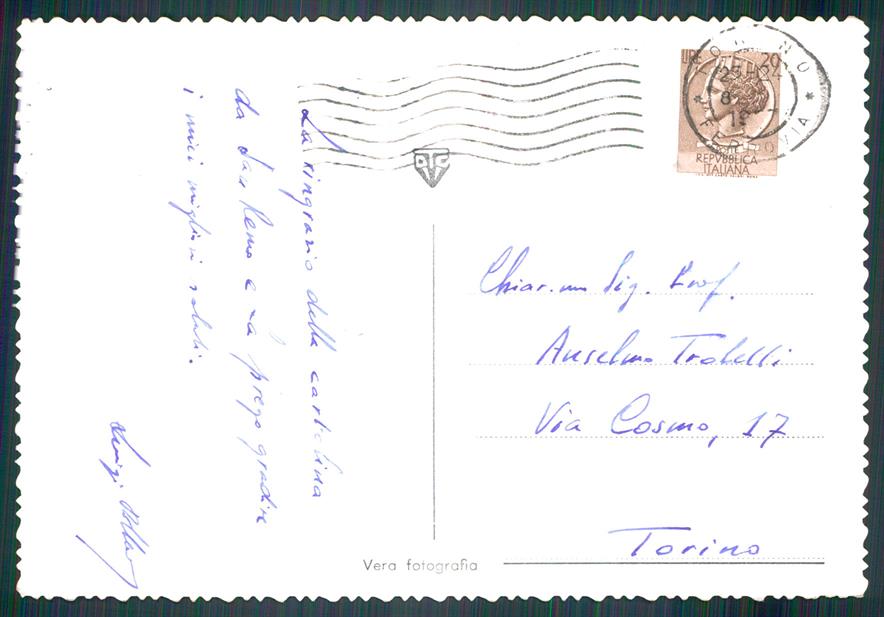 La ringrazio della cartolina
da San Remo e La prego gradire
i miei migliori saluti.
Luigi
LIRE 20
REPVBBLICA
ITALIANA
FERROVIA
Chiar.mo Sig. Prof.
Anselmo Trabelli
Via Cosmo, 17
Torino
Vera fotografia